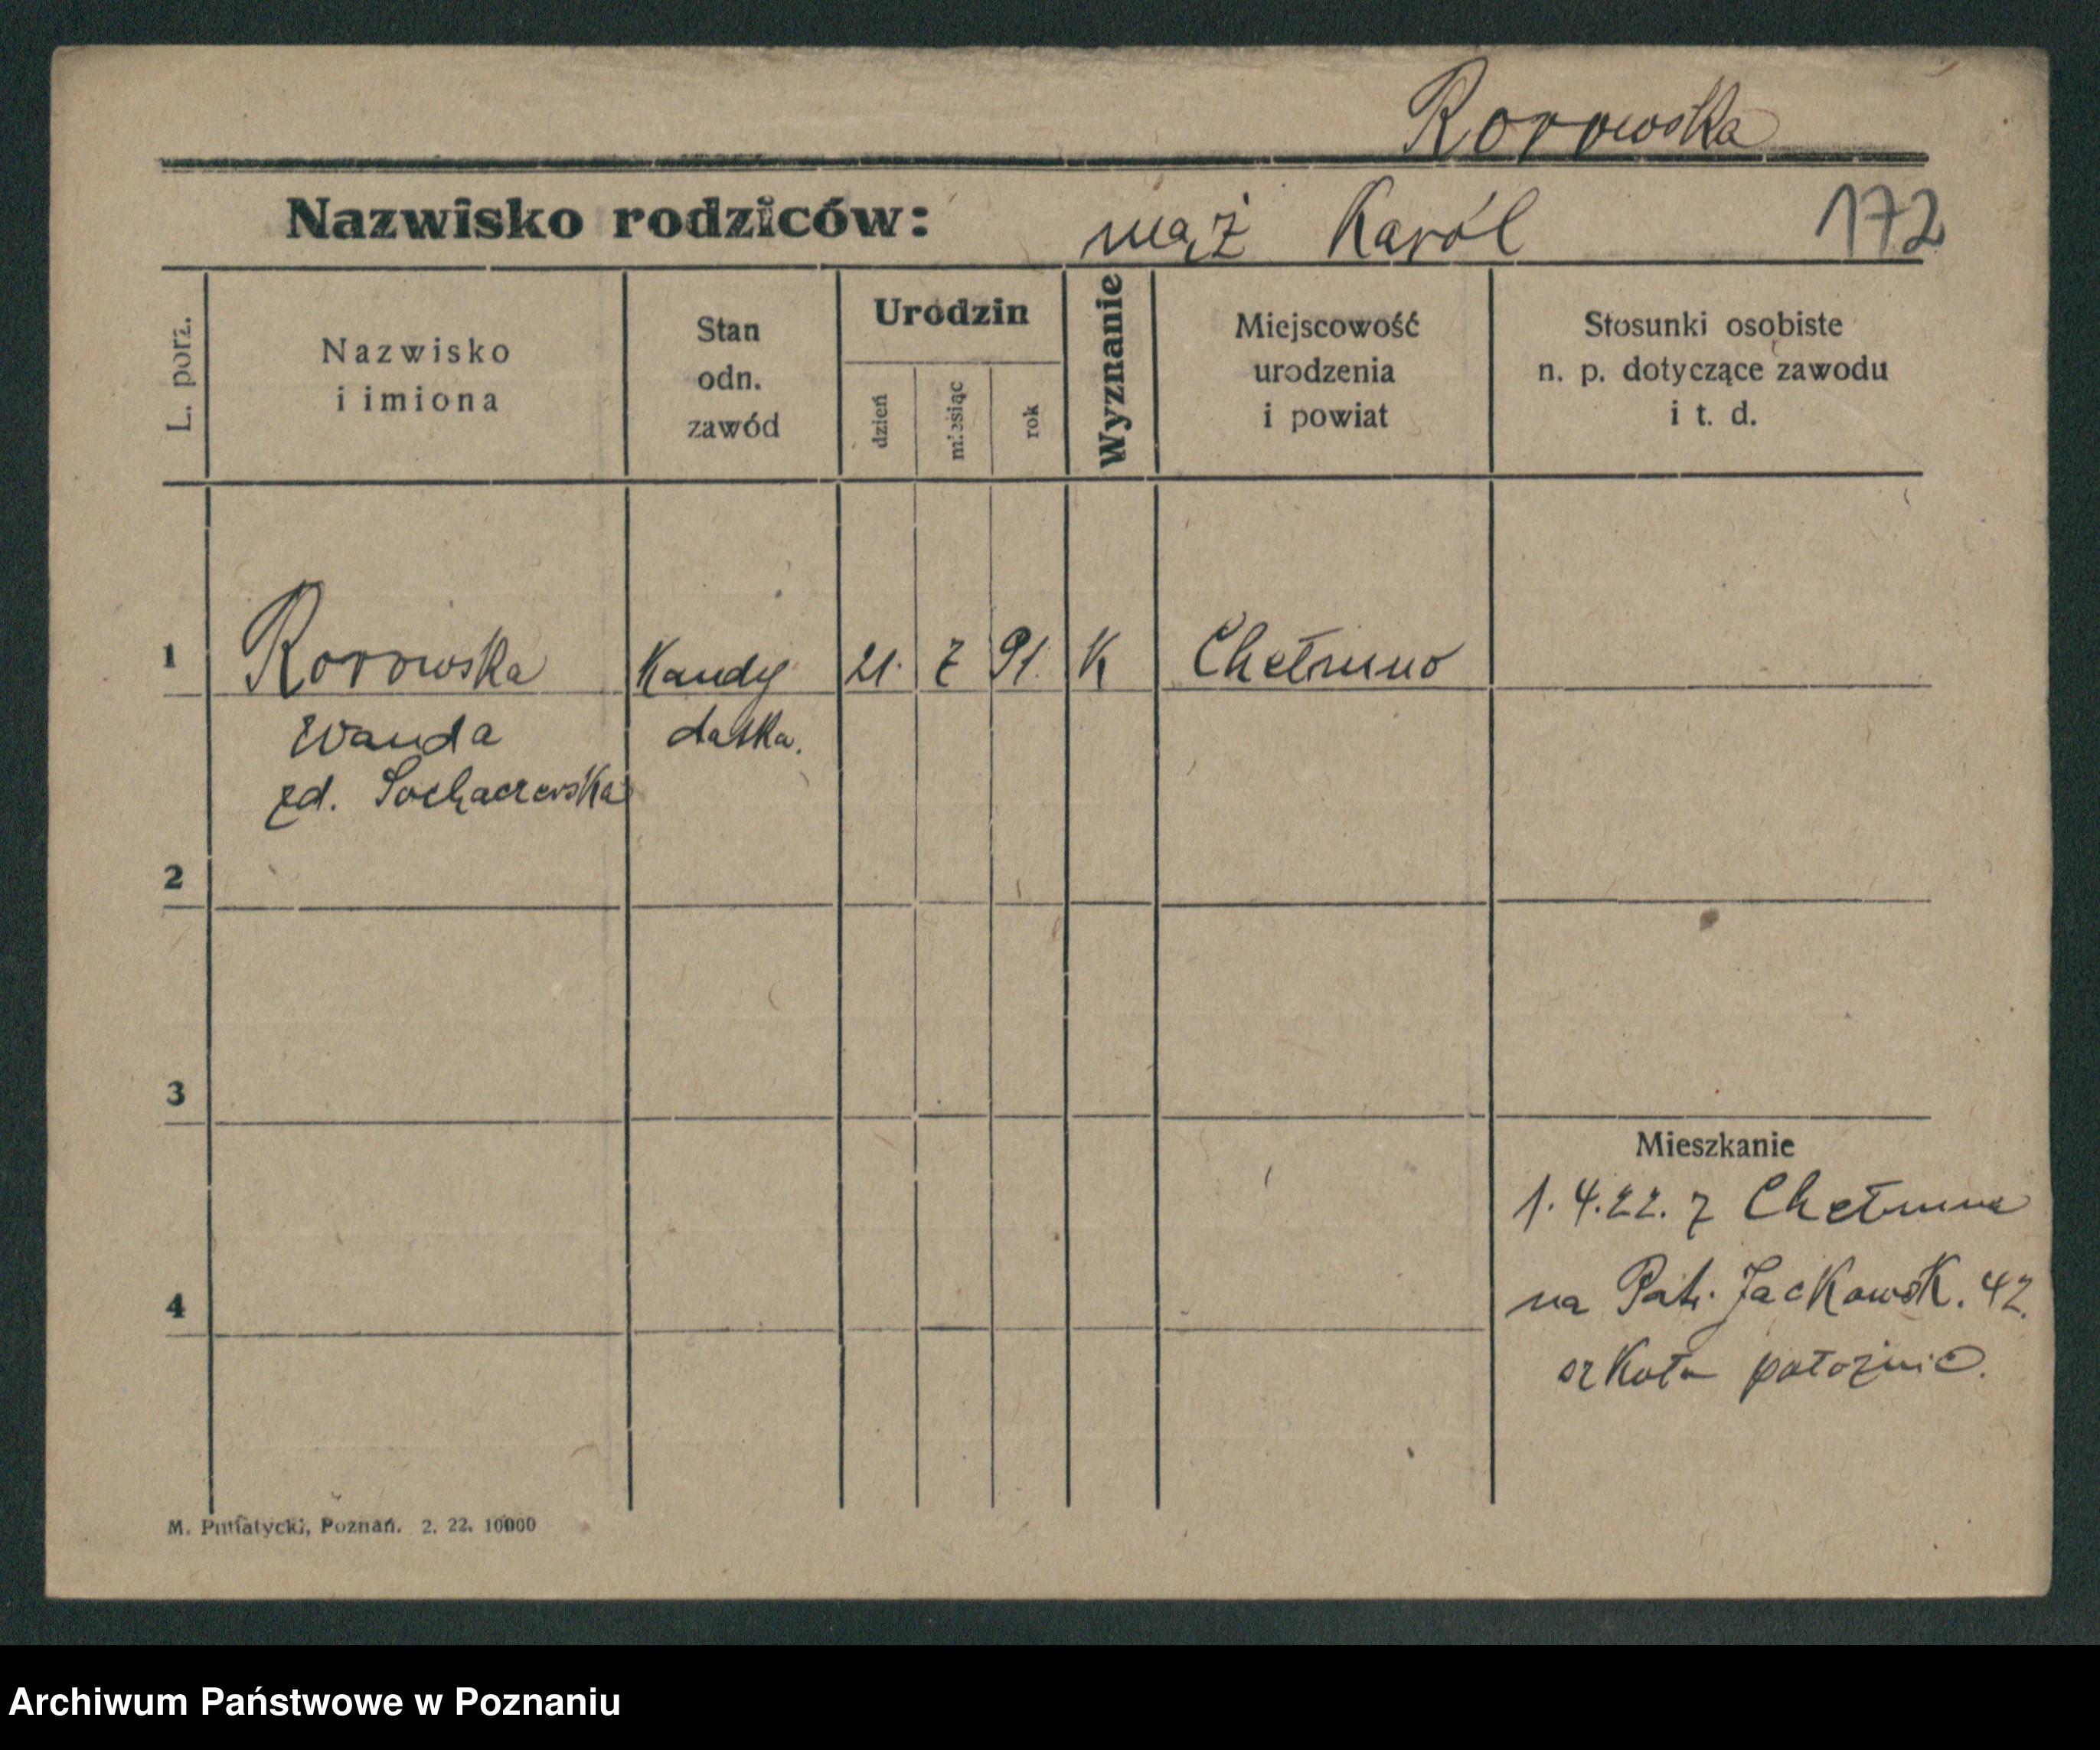 Rorowska
Nazwisko rodziców: mąż Karól 172
L. porz.
Nazwisko
i imiona
Stan
odn.
zawód
Urodzin
dzień
miesiąc
rok
Wyznanie
Miejscowość
urodzenia
i powiat
Stosunki osobiste
n. p. dotyczące zawodu
i t. d.
1 Rorowska Kandy 21. 7 91. K Chełmno
Wanda datka.
zd. Sochaczewska
2
3
Mieszkanie
1.4.22. z Chełmna
na Patr. Jackowsk. 42.
4
szkoła położnic.
M. Putiatycki, Poznań. 2. 22. 10000
Archiwum Państwowe w Poznaniu